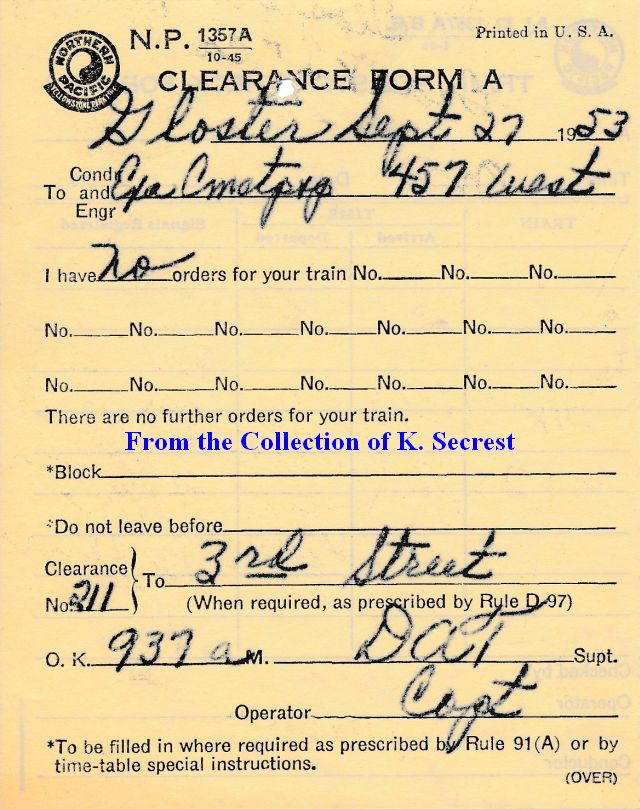 NORTHERN PACIFIC YELLOWSTONE PARK LINE
N.P. 1357A
10-45
Printed in U. S. A.
CLEARANCE FORM A
Gloster Sept 27 1953
Condr
To and 457 West
Engr
I have no orders for your train No. No. No.
No. No. No. No. No. No. No.
No. No. No. No. No. No. No.
There are no further orders for your train.
From the Collection of K. Secrest
*Block
*Do not leave before
Clearance
To 3rd Street
No. 211 (When required, as prescribed by Rule D-97)
O. K. 937 a M. DAT Supt.
Operator
*To be filled in where required as prescribed by Rule 91(A) or by
time-table special instructions.
(OVER)